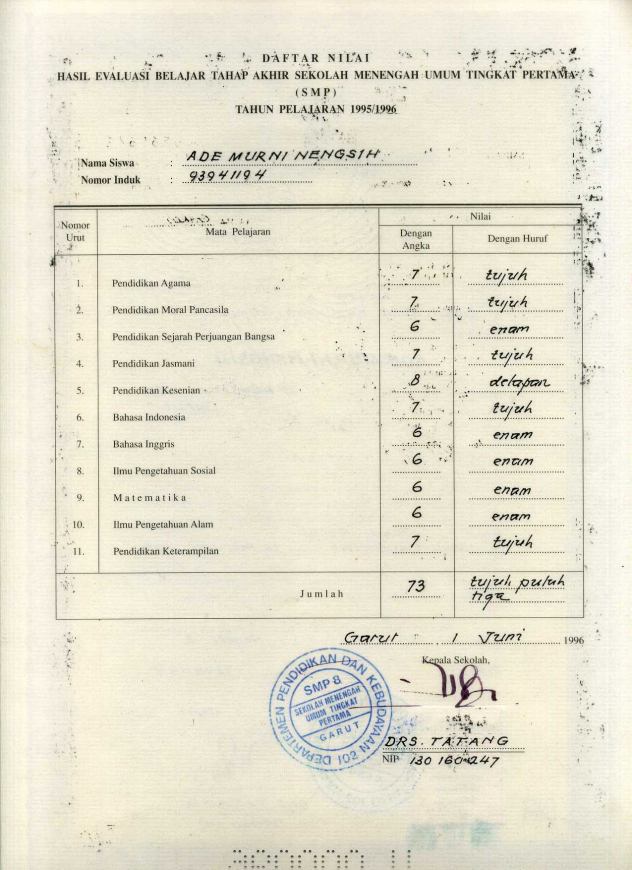 DAFTAR NILAI
HASIL EVALUASI BELAJAR TAHAP AKHIR SEKOLAH MENENGAH UMUM TINGKAT PERTAMA
(SMP)
TAHUN PELAJARAN 1995/1996
Nama Siswa : ADE MURNI NENGSIH
Nomor Induk : 93941194
Nomor Urut Mata Pelajaran Nilai
Dengan Angka Dengan Huruf
1. Pendidikan Agama 7 tujuh
2. Pendidikan Moral Pancasila 7 tujuh
3. Pendidikan Sejarah Perjuangan Bangsa 6 enam
4. Pendidikan Jasmani 7 tujuh
5. Pendidikan Kesenian 8 delapan
6. Bahasa Indonesia 7 tujuh
7. Bahasa Inggris 6 enam
8. Ilmu Pengetahuan Sosial 6 enam
9. Matematika 6 enam
10. Ilmu Pengetahuan Alam 6 enam
11. Pendidikan Keterampilan 7 tujuh
Jumlah 73 tujuh puluh
tiga
Garut 1 Juni 1996
Kepala Sekolah,
DEPARTEMEN PENDIDIKAN DAN KEBUDAYAAN
SMP 8
SEKOLAH MENENGAH
UMUM TINGKAT
PERTAMA
GARUT
DRS. TATANG
NIP 130 160 247